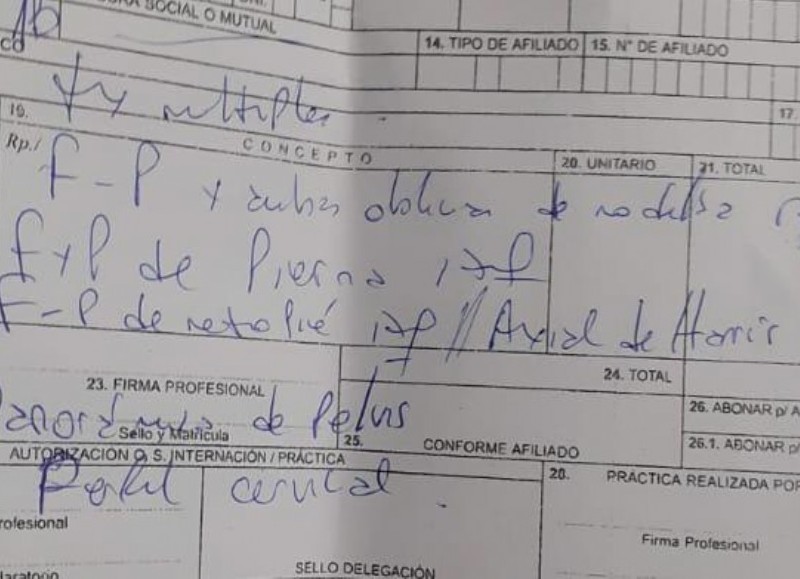 SOCIAL O MUTUAL
14. TIPO DE AFILIADO 15. N° DE AFILIADO
multiples
19. 17.
Rp./ CONCEPTO 20. UNITARIO 21. TOTAL
F-P y ambas oblicuas de rodilla
F y P de Pierna
F-P de retropié // Axial de Harris
24. TOTAL
23. FIRMA PROFESIONAL
Panorámica de Pelvis
26. ABONAR p/
Sello y Matrícula
25. CONFORME AFILIADO
26.1. ABONAR p/
AUTORIZACIÓN O. S. INTERNACIÓN / PRÁCTICA
28. PRÁCTICA REALIZADA POR
Perfil cervical.
Firma Profesional
SELLO DELEGACIÓN